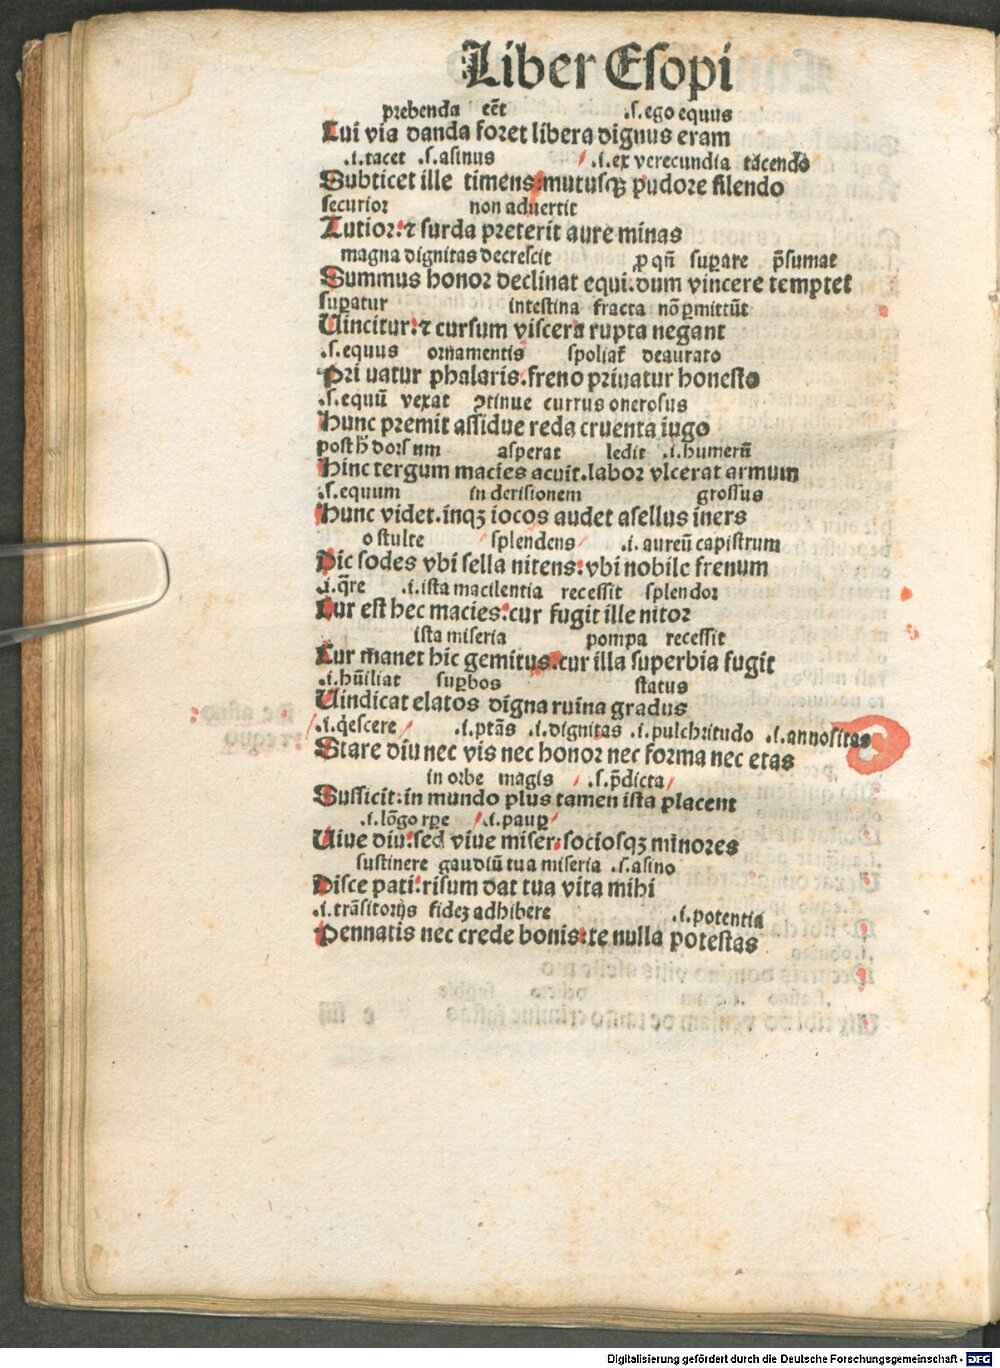 Liber Esopi
prebenda eēt .s. ego equus
Cui via danda foret libera dignus eram
.i. tacet .s. asinus .i. ex verecundia tacendo
Subticet ille timens: mutusqꝫ pudore silendo
securior non aduertit
Tutior: ⁊ surda preterit aure minas
magna dignitas decrescit ꝓ qn̄ suꝑare p̄sumat
Summus honor declinat equi. dum vincere temptet
suꝑatur intestina fracta nō ꝑmittūt
Uincitur: ⁊ cursum viscera rupta negant
.s. equus ornamentis spoliat᷑ deaurato
Pri uatur phalaris. freno priuatur honesto
.s. equū vexat ↄtinue currus onerosus
Hunc premit assidue reda cruenta iugo
post h̄ dorsum asperat ledit .i. humerū
Hinc tergum macies acuit. labor vlcerat armum
.s. equum in derisionem grossus
Hunc videt. inqꝫ iocos audet asellus iners
o stulte splendens .i. aureū capistrum
Dic sodes vbi sella nitens: vbi nobile frenum
.i. q̄re .i. ista macilentia recessit splendor
Cur est hec macies: cur fugit ille nitor
ista miseria pompa recessit
Cur manet hic gemitus. cur illa superbia fugit
.i. hūiliat suꝑbos status
Uindicat elatos digna ruina gradus
.i. q̇escere .i. ptās .i. dignitas .i. pulchritudo .i. annositas
Stare diu nec vis nec honor nec forma nec etas
in orbe magis .s. p̄dicta
Sufficit: in mundo plus tamen ista placent
.i. lōgo tꝑe .i. pauꝑ
Uiue diu: sed viue miser: sociosqꝫ minores
sustinere gaudiū tua miseria .s. asino
Disce pati: risum dat tua vita mihi
.i. trāsitorijs fidem adhibere .i. potentia
Pennatis nec crede bonis: te nulla potestas
Digitalisierung gefördert durch die Deutsche Forschungsgemeinschaft - DFG